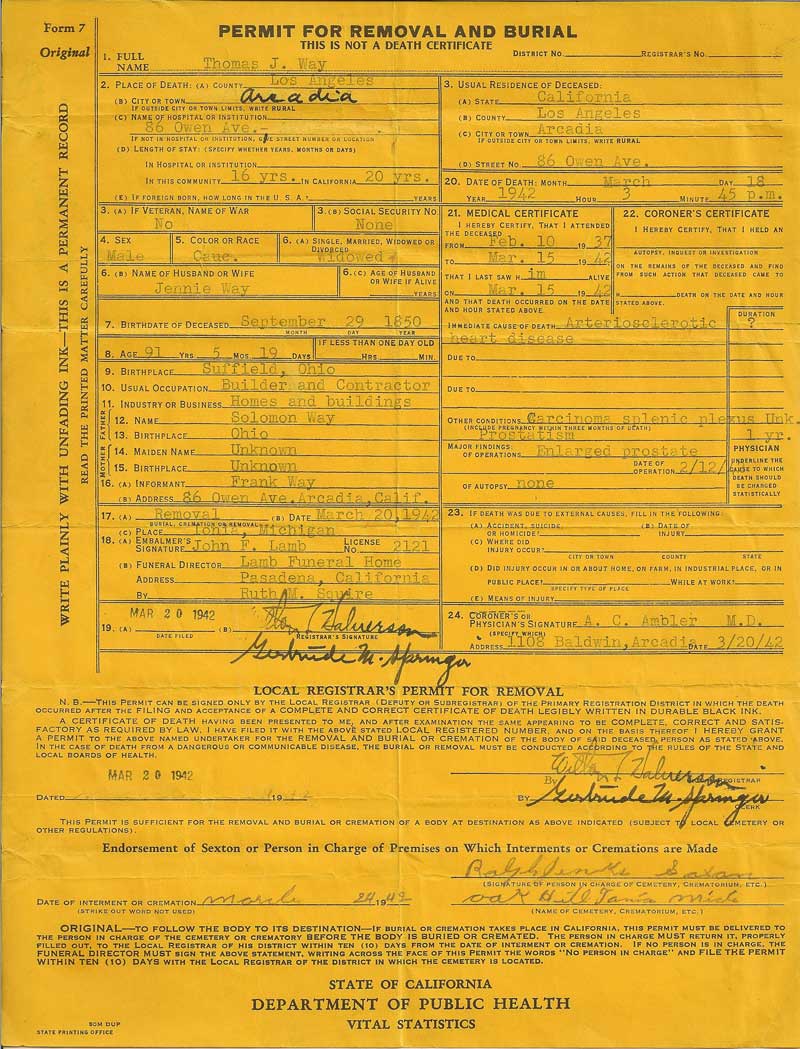 Form 7
Original
PERMIT FOR REMOVAL AND BURIAL
THIS IS NOT A DEATH CERTIFICATE
DISTRICT NO. REGISTRAR'S NO.
WRITE PLAINLY WITH UNFADING INK—THIS IS A PERMANENT RECORD
READ THE PRINTED MATTER CAREFULLY
1. FULL NAME Thomas J. Way
2. PLACE OF DEATH: (A) COUNTY Los Angeles
(B) CITY OR TOWN Arcadia
IF OUTSIDE CITY OR TOWN LIMITS, WRITE RURAL
(C) NAME OF HOSPITAL OR INSTITUTION
86 Owen Ave.
IF NOT IN HOSPITAL OR INSTITUTION, GIVE STREET NUMBER OR LOCATION
(D) LENGTH OF STAY: (SPECIFY WHETHER YEARS, MONTHS OR DAYS)
IN HOSPITAL OR INSTITUTION
IN THIS COMMUNITY 16 yrs. IN CALIFORNIA 20 yrs.
(E) IF FOREIGN BORN, HOW LONG IN THE U. S. A.? YEARS
3. (A) IF VETERAN, NAME OF WAR No
3. (B) SOCIAL SECURITY NO. None
4. SEX Male
5. COLOR OR RACE Cauc.
6. (A) SINGLE, MARRIED, WIDOWED OR DIVORCED Widowed
6. (B) NAME OF HUSBAND OR WIFE Jennie Way
6. (C) AGE OF HUSBAND OR WIFE IF ALIVE YEARS
7. BIRTHDATE OF DECEASED September 29 1850
MONTH DAY YEAR
8. AGE 91 YRS 5 MOS 19 DAYS
IF LESS THAN ONE DAY OLD HRS. MIN.
9. BIRTHPLACE Suffield, Ohio
10. USUAL OCCUPATION Builder and Contractor
11. INDUSTRY OR BUSINESS Homes and buildings
FATHER
12. NAME Solomon Way
13. BIRTHPLACE Ohio
MOTHER
14. MAIDEN NAME Unknown
15. BIRTHPLACE Unknown
16. (A) INFORMANT Frank Way
(B) ADDRESS 86 Owen Ave. Arcadia, Calif.
17. (A) Removal (B) DATE March 20, 1942
BURIAL, CREMATION OR REMOVAL
(C) PLACE Ionia, Michigan
18. (A) EMBALMER'S SIGNATURE John F. Lamb LICENSE NO. 2121
(B) FUNERAL DIRECTOR Lamb Funeral Home
ADDRESS Pasadena, California
BY Ruth M. Squire
19. (A) MAR 20 1942 (B) Halverson
DATE FILED REGISTRAR'S SIGNATURE
Gertrude M. Springer
3. USUAL RESIDENCE OF DECEASED:
(A) STATE California
(B) COUNTY Los Angeles
(C) CITY OR TOWN Arcadia
IF OUTSIDE CITY OR TOWN LIMITS, WRITE RURAL
(D) STREET NO. 86 Owen Ave.
20. DATE OF DEATH: MONTH March DAY 18
YEAR 1942 HOUR 3 MINUTE 45 p.m.
21. MEDICAL CERTIFICATE
I HEREBY CERTIFY, THAT I ATTENDED THE DECEASED
FROM Feb. 10 1937
TO Mar. 15 1942
THAT I LAST SAW H im ALIVE
ON Mar. 15 1942
AND THAT DEATH OCCURRED ON THE DATE AND HOUR STATED ABOVE.
22. CORONER'S CERTIFICATE
I HEREBY CERTIFY, THAT I HELD AN
AUTOPSY, INQUEST OR INVESTIGATION
ON THE REMAINS OF THE DECEASED AND FIND FROM SUCH ACTION THAT DECEASED CAME TO
H DEATH ON THE DATE AND HOUR STATED ABOVE.
DURATION
?
IMMEDIATE CAUSE OF DEATH Arteriosclerotic
heart disease
DUE TO
DUE TO
OTHER CONDITIONS Carcinoma splenic plexus Unk.
(INCLUDE PREGNANCY WITHIN THREE MONTHS OF DEATH)
Prostatism 1 yr.
MAJOR FINDINGS:
OF OPERATIONS Enlarged prostate
DATE OF OPERATION 2/12/
OF AUTOPSY none
PHYSICIAN
UNDERLINE THE CAUSE TO WHICH DEATH SHOULD BE CHARGED STATISTICALLY
23. IF DEATH WAS DUE TO EXTERNAL CAUSES, FILL IN THE FOLLOWING:
(A) ACCIDENT, SUICIDE, OR HOMICIDE? (B) DATE OF INJURY
(C) WHERE DID INJURY OCCUR?
CITY OR TOWN COUNTY STATE
(D) DID INJURY OCCUR IN OR ABOUT HOME, ON FARM, IN INDUSTRIAL PLACE, OR IN
PUBLIC PLACE? WHILE AT WORK?
SPECIFY TYPE OF PLACE
(E) MEANS OF INJURY
24. CORONER'S OR PHYSICIAN'S SIGNATURE A. C. Ambler M.D.
(SPECIFY WHICH)
ADDRESS 1108 Baldwin, Arcadia DATE 3/20/42
LOCAL REGISTRAR'S PERMIT FOR REMOVAL
N. B.—THIS PERMIT CAN BE SIGNED ONLY BY THE LOCAL REGISTRAR (DEPUTY OR SUBREGISTRAR) OF THE PRIMARY REGISTRATION DISTRICT IN WHICH THE DEATH
OCCURRED AFTER THE FILING AND ACCEPTANCE OF A COMPLETE AND CORRECT CERTIFICATE OF DEATH LEGIBLY WRITTEN IN DURABLE BLACK INK.
A CERTIFICATE OF DEATH HAVING BEEN PRESENTED TO ME, AND AFTER EXAMINATION THE SAME APPEARING TO BE COMPLETE, CORRECT AND SATIS-
FACTORY AS REQUIRED BY LAW, I HAVE FILED IT WITH THE ABOVE STATED LOCAL REGISTERED NUMBER, AND ON THE BASIS THEREOF I HEREBY GRANT
A PERMIT TO THE ABOVE NAMED UNDERTAKER FOR THE REMOVAL AND BURIAL OR CREMATION OF THE BODY OF SAID DECEASED PERSON AS STATED ABOVE.
IN THE CASE OF DEATH FROM A DANGEROUS OR COMMUNICABLE DISEASE, THE BURIAL OR REMOVAL MUST BE CONDUCTED ACCORDING TO THE RULES OF THE STATE AND
LOCAL BOARDS OF HEALTH.
MAR 20 1942
BY Halverson REGISTRAR
DATED 19 BY Gertrude M. Springer
CLERK
THIS PERMIT IS SUFFICIENT FOR THE REMOVAL AND BURIAL OR CREMATION OF A BODY AT DESTINATION AS ABOVE INDICATED (SUBJECT TO LOCAL CEMETERY OR
OTHER REGULATIONS).
Endorsement of Sexton or Person in Charge of Premises on Which Interments or Cremations are Made
Ralph
(SIGNATURE OF PERSON IN CHARGE OF CEMETERY, CREMATORIUM, ETC.)
DATE OF INTERMENT OR CREMATION March 24, 1942 Oak Hill Ionia Mich
(STRIKE OUT WORD NOT USED) (NAME OF CEMETERY, CREMATORIUM, ETC.)
ORIGINAL—TO FOLLOW THE BODY TO ITS DESTINATION—IF BURIAL OR CREMATION TAKES PLACE IN CALIFORNIA, THIS PERMIT MUST BE DELIVERED TO
THE PERSON IN CHARGE OF THE CEMETERY OR CREMATORY BEFORE THE BODY IS BURIED OR CREMATED. THE PERSON IN CHARGE MUST RETURN IT, PROPERLY
FILLED OUT, TO THE LOCAL REGISTRAR OF HIS DISTRICT WITHIN TEN (10) DAYS FROM THE DATE OF INTERMENT OR CREMATION. IF NO PERSON IS IN CHARGE, THE
FUNERAL DIRECTOR MUST SIGN THE ABOVE STATEMENT, WRITING ACROSS THE FACE OF THIS PERMIT THE WORDS "NO PERSON IN CHARGE" AND FILE THE PERMIT
WITHIN TEN (10) DAYS WITH THE LOCAL REGISTRAR OF THE DISTRICT IN WHICH THE CEMETERY IS LOCATED.
STATE OF CALIFORNIA
DEPARTMENT OF PUBLIC HEALTH
VITAL STATISTICS
50M DUP
STATE PRINTING OFFICE